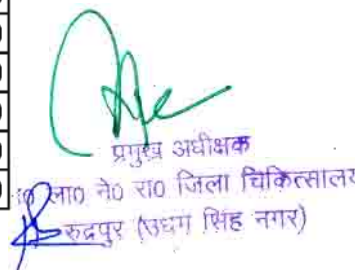 प्रमुख अधीक्षक
ज०ला० ने० रा० जिला चिकित्सालय
रुद्रपुर (उधम सिंह नगर)